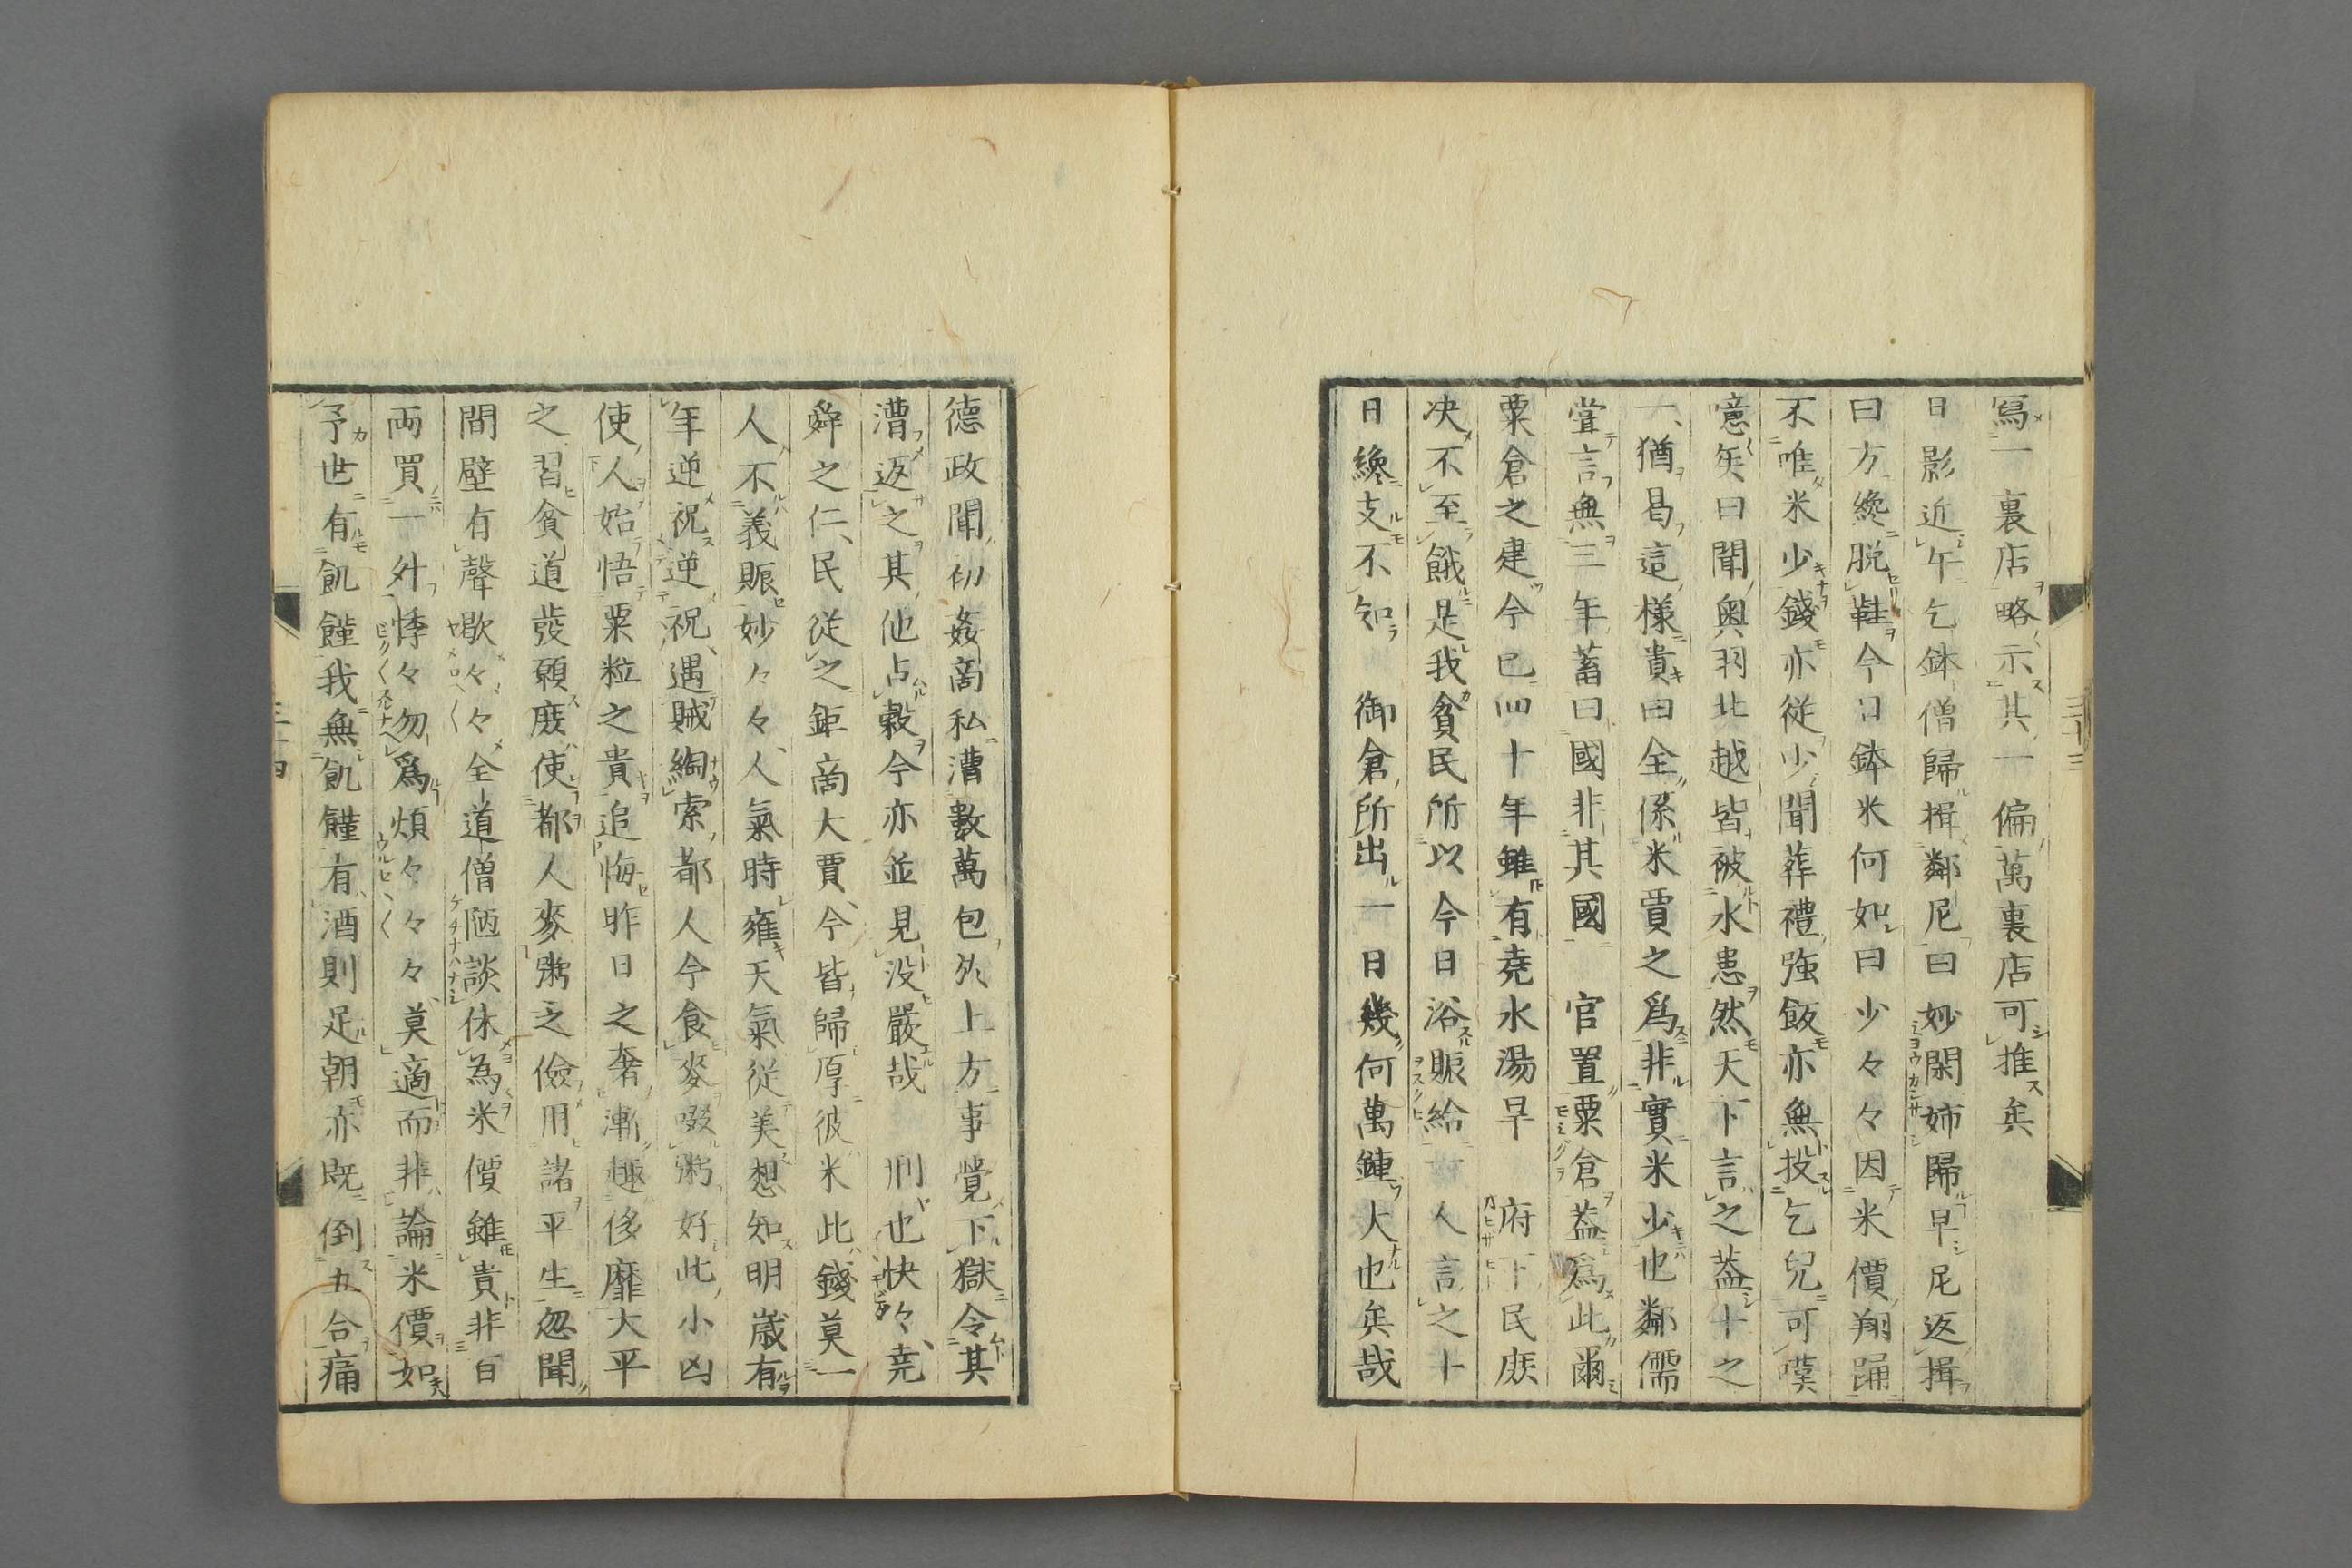 寫一裏店略示其一偏萬裏店可推矣
日影近午乞鉢僧歸揖鄰尼曰妙閑姉歸早尼返揖
曰方纔脱鞋今日鉢米何如曰少々々因米價翔踊
不唯米少錢亦従少聞葬禮強飯亦無投乞兒可嘆
噫矣曰聞奥羽北越皆被水患然天下言之葢十之
一猶曷這様貴曰全係米賈之爲非實米少也鄰儒
嘗言無三年蓄曰國非其國　官置粟倉葢爲此爾
粟倉之建今已四十年雖有堯水湯旱　府下民庶
决不至餓是我貧民所以今日浴賑給　人言之十
日纔支不知　御倉所出一日幾何萬鍾大也矣哉
三十三
德政聞初姦啇私漕數萬包外上方事覺下獄令其
漕返之其他占糓今亦並見没嚴哉　刑也快々堯
舜之仁民従之鉅啇大賈今皆歸厚彼米此錢莫一
人不義賑妙々々人氣時雍天氣従美想知明歳有
年逆祝逆祝遇賊綯索都人今食麥啜粥好此小凶
使人始悟粟粒之貴追悔昨日之奢漸趣侈靡大平
之習貧道發願庶使都人麥粥之儉用諸平生忽聞
間壁有聲歇々々全道僧陋談休為米價雖貴非百
両買一升悸々勿爲煩々々々莫適而非論米價如
予世有飢饉我無飢饉有酒則足朝亦既倒五合痛
三十四